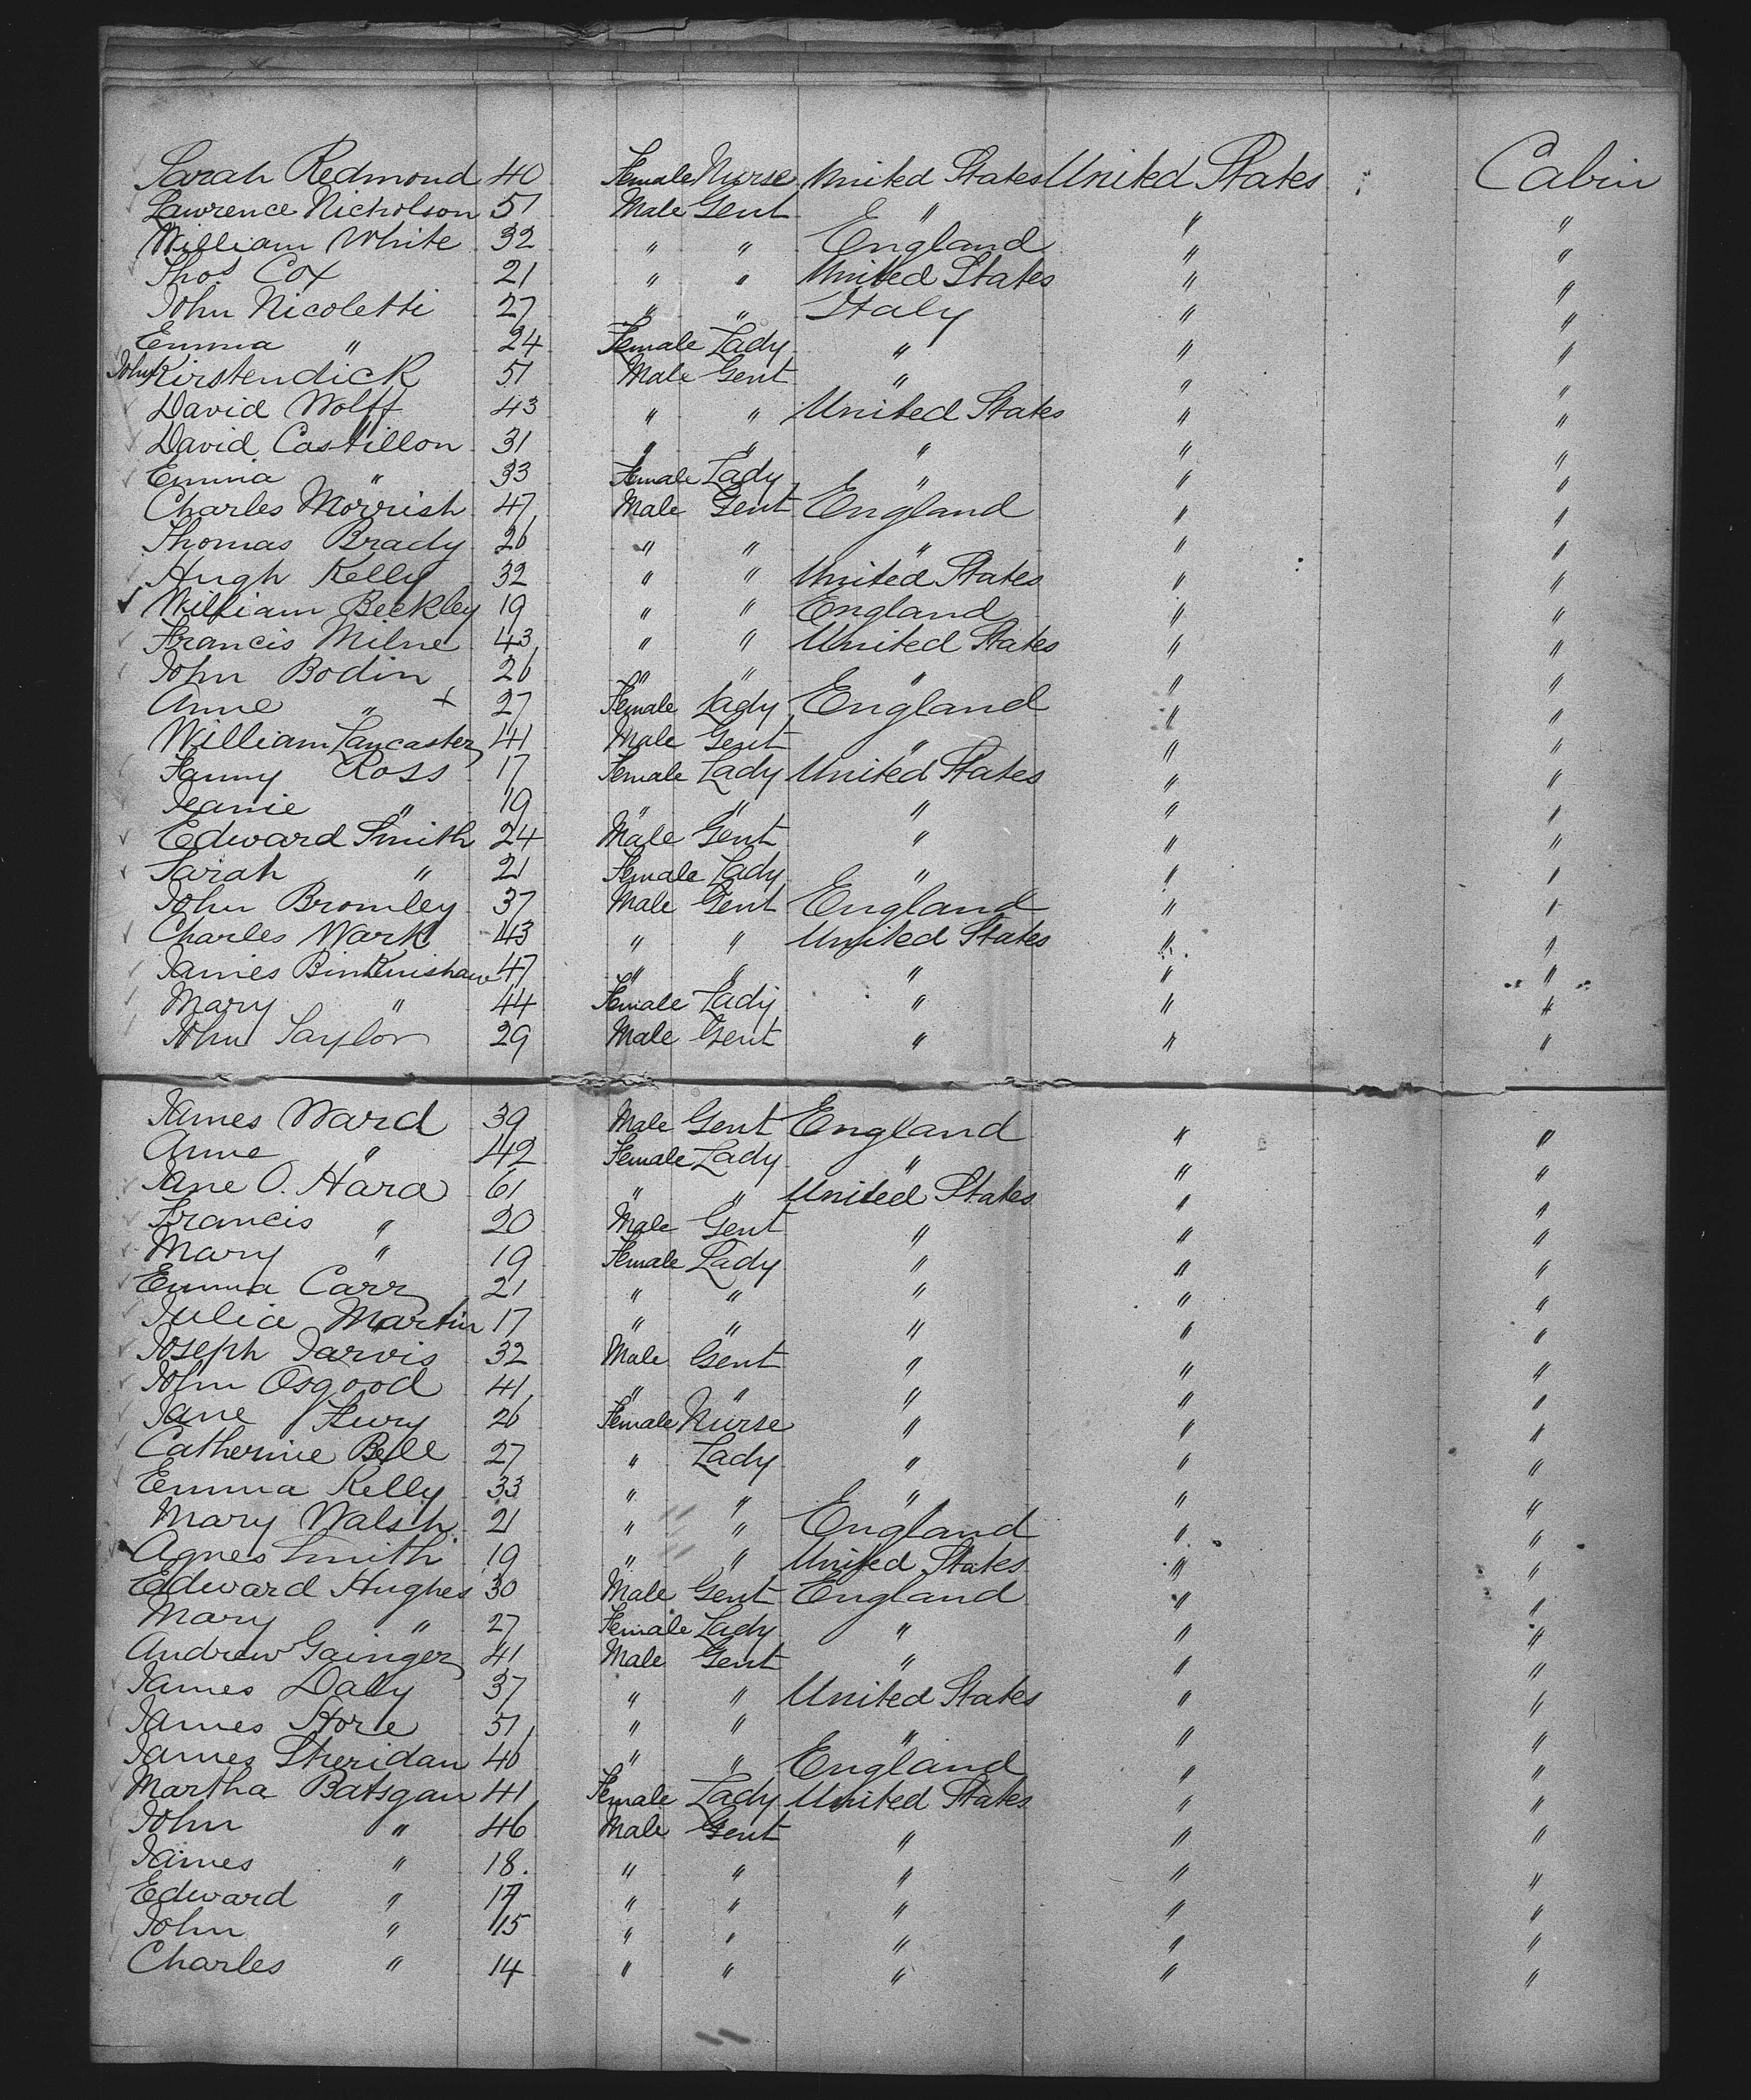 Sarah Redmond 40 Female Nurse United States United States Cabin
Lawrence Nicholson 51 Male Gent " " "
William White 32 " " England " "
Thos Cox 21 " " United States " "
John Nicoletti 27 " " Italy " "
Emma " 24 Female Lady " " "
John Kirstendick 51 Male Gent " " "
David Wolff 43 " " United States " "
David Castillon 31 " " " " "
Emma " 33 Female Lady " " "
Charles Morrish 47 Male Gent England " "
Thomas Brady 26 " " " " "
Hugh Kelly 32 " " United States " "
William Beckley 19 " " England " "
Francis Milne 43 " " United States " "
John Bodin 26 " " " " "
Anne " + 27 Female Lady England " "
William Lancaster 41 Male Gent " " "
Fanny Ross 17 Female Lady United States " "
Jeanie " 19 " " " " "
Edward Smith 24 Male Gent " " "
Sarah " 21 Female Lady " " "
John Bromley 37 Male Gent England " "
Charles Wark 43 " " United States " "
James 47 " " " " "
Mary " 44 Female Lady " " "
John Taylor 29 Male Gent " " "
James Ward 39 Male Gent England " "
Anne " 42 Female Lady " " "
Jane O. Hara 61 " " United States " "
Francis " 20 Male Gent " " "
Mary " 19 Female Lady " " "
Emma Carr 21 " " " " "
Julia Martin 17 " " " " "
Joseph Jarvis 32 Male Gent " " "
John Osgood 41 " " " " "
Jane 26 Female Nurse " " "
Catherine Bell 27 " Lady " " "
Emma Kelly 33 " " " " "
Mary Walsh 21 " " England " "
Agnes Smith 19 " " United States " "
Edward Hughes 30 Male Gent England " "
Mary " 27 Female Lady " " "
Andrew Gainger 41 Male Gent " " "
James Daly 37 " " United States " "
James Hore 51 " " " " "
James Sheridan 46 " " England " "
Martha Batsgan 41 Female Lady United States " "
John " 46 Male Gent " " "
James " 18. " " " " "
Edward " 17 " " " " "
John " 15 " " " " "
Charles " 14 " " " " "